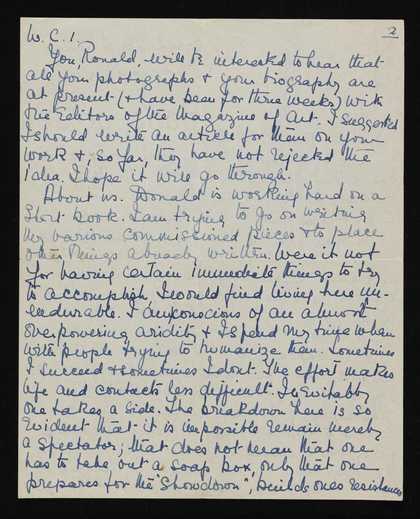 2
W.C.1.
You, Ronald, will be interested to hear that
all your photographs & your biography are
at present (& have been for three weeks) with
the Editors of the Magazine of Art. I suggested
I should write an article for them on your
work &, so far, they have not rejected the
idea. I hope it will go through.
About us. Donald is working hard on a
short book. I am trying to go on writing
my various commissioned pieces & to place
other things already written. Were it not
for having certain immediate things to try
to accomplish, I would find living here un-
endurable. I am conscious of an almost
overpowering aridity & I spend my time when
with people trying to humanize them. Sometimes
I succeed & sometimes I don't. The effort makes
life and contacts less difficult. Inevitably
one takes a side. The breakdown here is so
evident that it is impossible remain merely
a spectator; that does not mean that one
has to take out a soap box, only that one
prepares for the "showdown", builds ones resistances